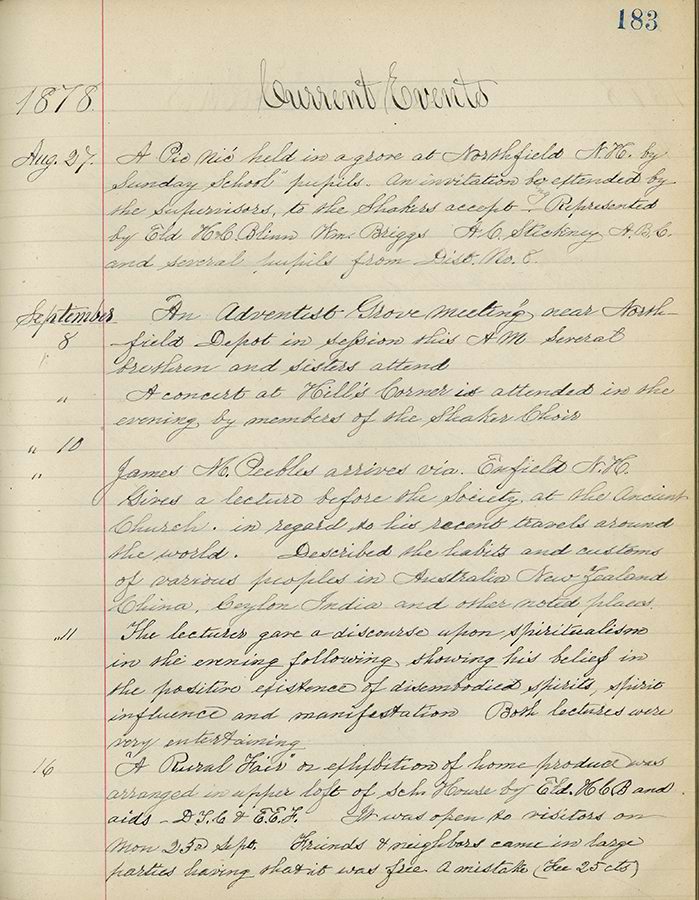 183
1878. Current Events
Aug. 27. A Pic Nic held in a grove at Northfield N.H. by
Sunday School" pupils. An invitation being extended by
the supervisors, to the Shakers accept. Represented
by Eld H.C. Blinn Wm. Briggs A.C. Stickney A.B.C.
and several pupils from Dist. No. 6.
September An Adventist Grove Meeting, near North-
8 -field Depot in session this A M Several
brethren and sisters attend
" A concert at Hill's Corner is attended in the
evening by members of the Shaker Choir
" 10
" James M. Peebles arrives via. Enfield N.H.
Gives a lecture before the Society, at the Ancient
Church. in regard to his recent travels around
the world. Described the habits and customs
of various peoples in Australia New Zealand
China, Ceylon India and other noted places.
" 11 The lecturer gave a discourse upon spiritualism
in the evening following, showing his belief in
the positive existence of disembodied spirits, spirit
influence and manifestation Both lectures were
very entertaining
16 "A Rural Fair" or exhibition of home produce was
arranged in upper loft of Sch. House by Eld. H C B and
aids - D.S.C & E.E.F. It was open to visitors on
Mon 23rd Sept. Friends & neighbors came in large
parties having that it was free. A mistake (Fee 25 cts)